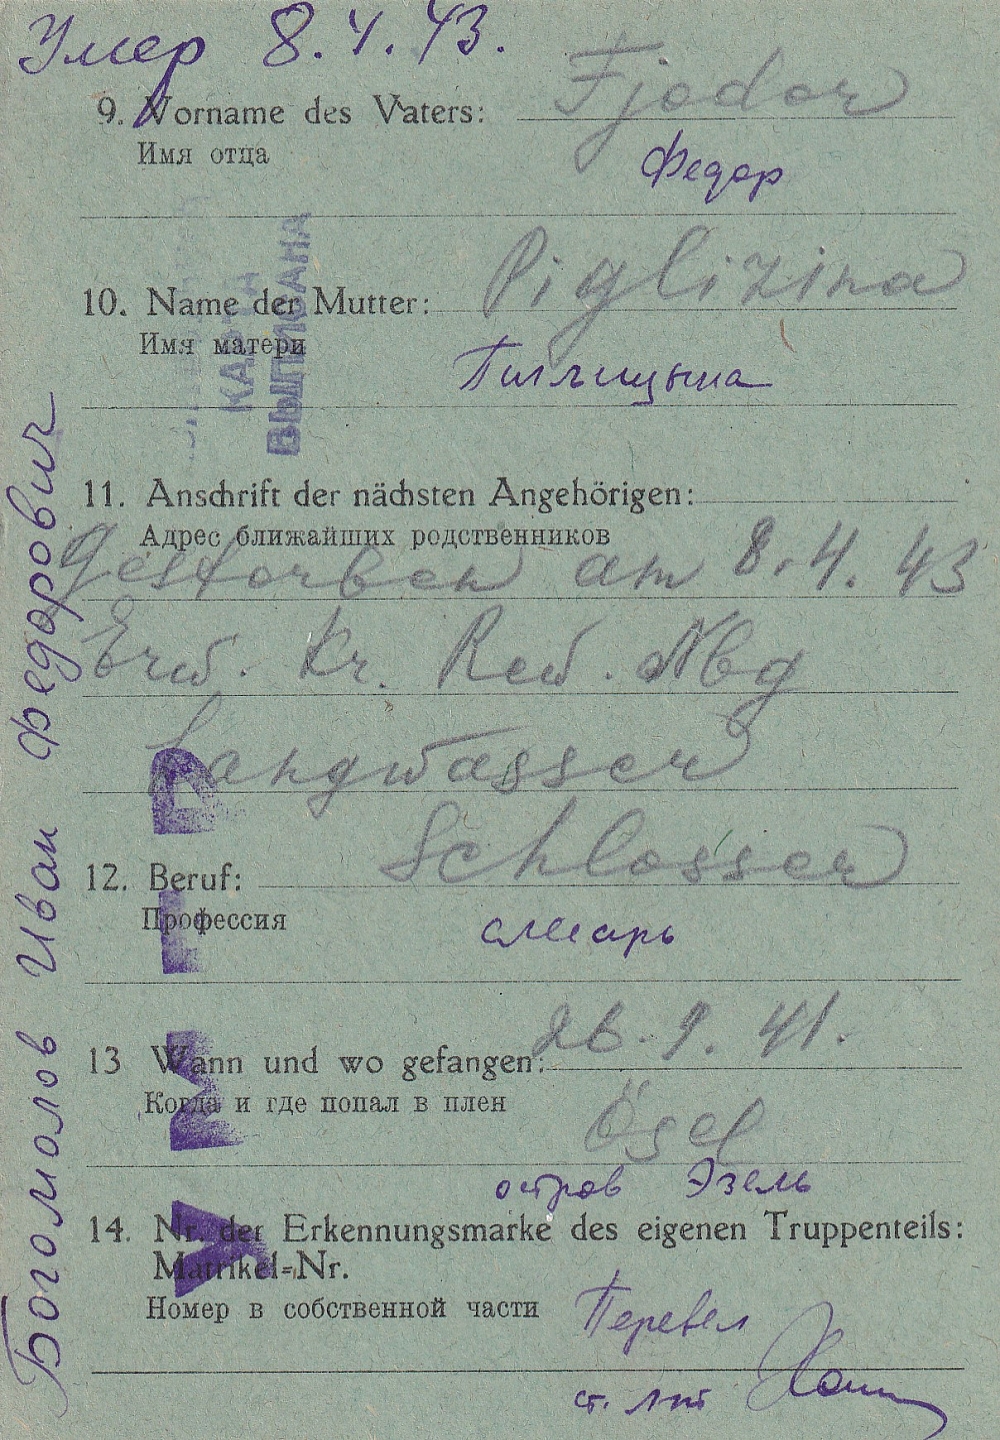 Умер 8.4.43.
9. Vorname des Vaters: Fjodor
Имя отца
Федор
10. Name der Mutter: Piglizina
Имя матери
Пиглицына
11. Anschrift der nächsten Angehörigen:
Адрес ближайших родственников
Gestorben am 8.4.43
Kr. Nbg
Langwasser
12. Beruf: Schlosser
Профессия
слесарь
13 Wann und wo gefangen: 26.9.41.
Когда и где попал в плен
Ösel
остров Эзель
14. Nr. der Erkennungsmarke des eigenen Truppenteils:
Matrikel=Nr.
Номер в собственной части
Перевел
ст. лт
Богомолов Иван Федорович
КАРТА
ВЫПИСАНА
УМЕР